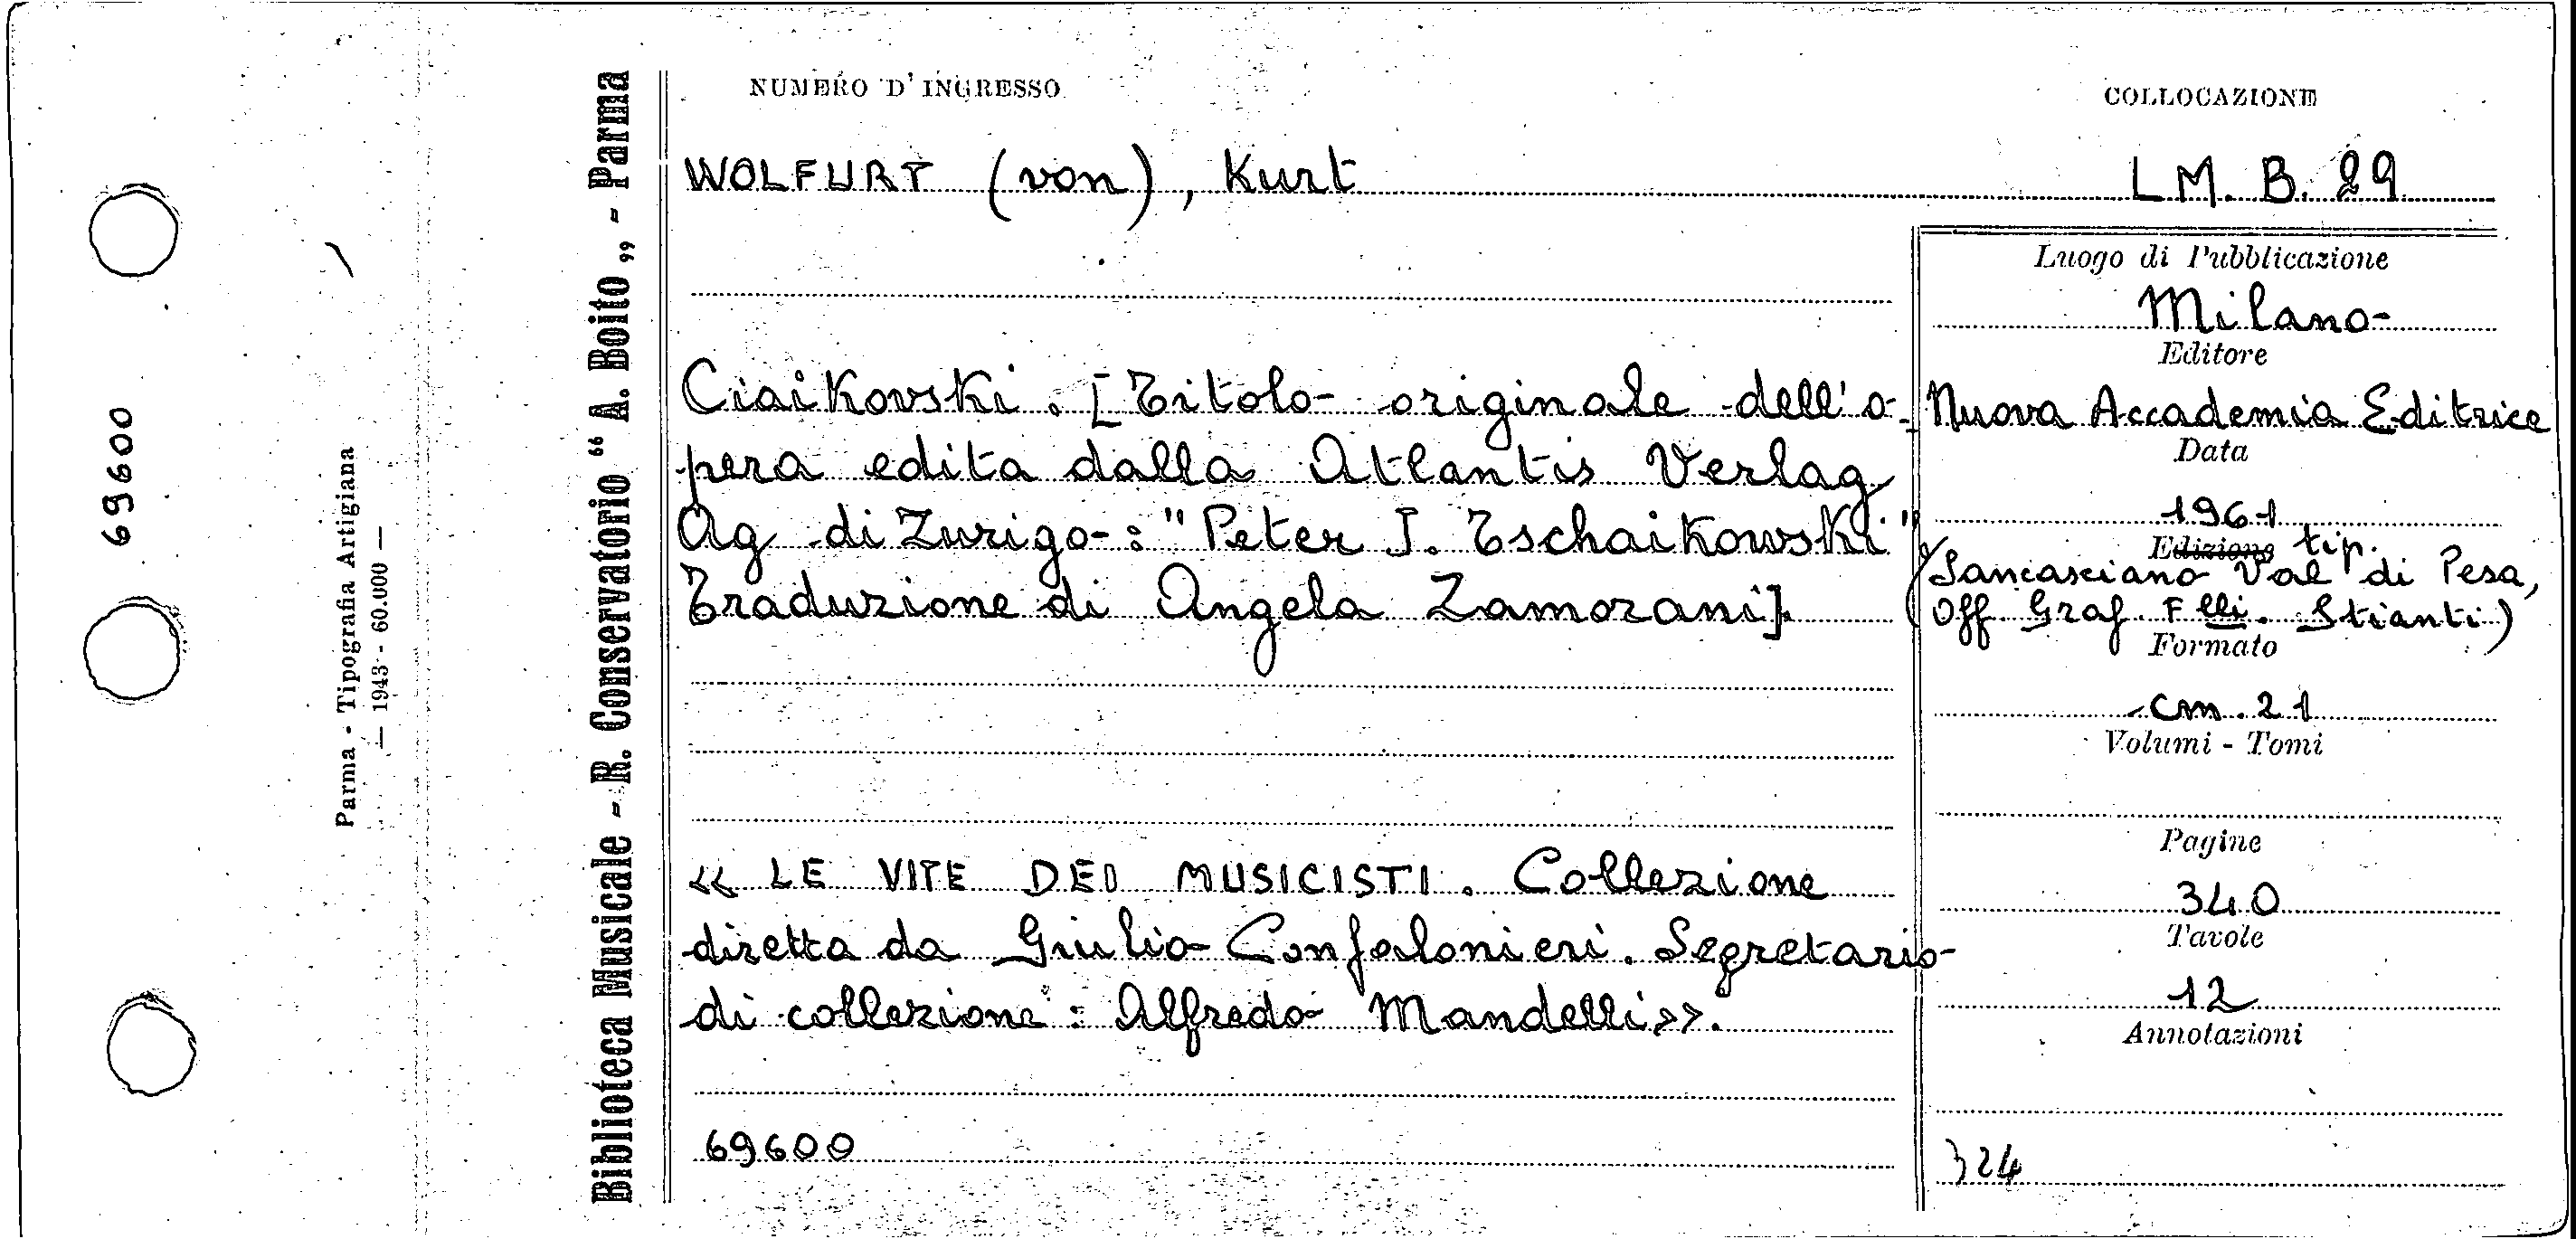 69600
Parma - Tipografia Artigiana
— 1943 - 60.000 —
Biblioteca Musicale - R. Conservatorio “ A. Boito „ - Parma
NUMERO D' INGRESSO
COLLOCAZIONE
WOLFURT (von), Kurt
LM. B. 29
Ciaikovski. [Titolo originale dell'o-
pera edita dalla Atlantis Verlag
Ag di Zurigo: "Peter J. Tschaikowski"
Traduzione di Angela Zamorani].
« LE VITE DEI MUSICISTI. Collezione
diretta da Giulio Confalonieri. Segretario
di collezione: Alfredo Mandelli».
69600
Luogo di Pubblicazione
Milano
Editore
Nuova Accademia Editrice
Data
1961
Edizione tip.
(Sancasciano Val di Pesa,
Off. Graf. F.lli. Stianti)
Formato
cm. 21
Volumi - Tomi
Pagine
340
Tavole
12
Annotazioni
324